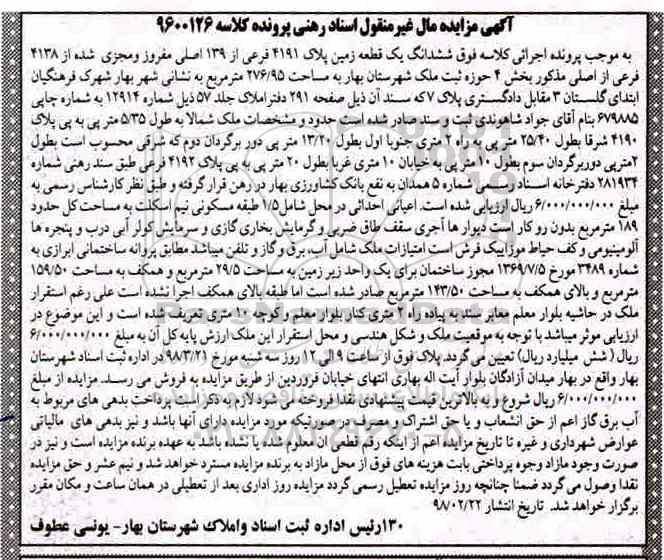 آگهی مزایده مال غیرمنقول اسناد رهنی پرونده کلاسه ۹۶۰۰۱۲۶
به موجب پرونده اجرائی کلاسه فوق ششدانگ یک قطعه زمین پلاک ۴۱۹۱ فرعی از ۱۳۹ اصلی مفروز ومجزی شده از ۴۱۳۸
فرعی از اصلی مذکور بخش ۴ حوزه ثبت ملک شهرستان بهار به مساحت ۲۷۶/۹۵ مترمربع به نشانی شهر بهار شهرک فرهنگیان
ابتدای گلستان ۳ مقابل دادگستری پلاک ۷ که سند آن ذیل صفحه ۲۹۱ دفتراملاک جلد ۵۷ ذیل شماره ۱۲۹۱۴ به شماره چاپی
۶۷۹۸۸۵ بنام آقای جواد شاهوندی ثبت و سند صادر شده است حدود و مشخصات ملک شمالا به طول ۵/۳۵ متر پی به پی پلاک
۴۱۹۰ شرقا بطول ۲۵/۴۰ متر پی به راه ۲ متری جنوبا اول بطول ۱۲/۲۰ متر پی دور برگردان دوم که شرقی محسوب است بطول
۲متربی دوربرگردان سوم بطول ۱۰ متر پی به خیابان ۱۰ متری غربا بطول ۲۰ متر پی به پی پلاک ۴۱۹۲ فرعی طبق سند رهنی شماره
۲۸۱۹۳۴ دفترخانه اسناد رسمی شماره ۵ همدان به نفع بانک کشاورزی بهار در رهن قرار گرفته و طبق نظر کارشناس رسمی به
مبلغ ۶/۰۰۰/۰۰۰/۰۰۰ ریال ارزیابی شده است. اعیانی احداثی در محل شامل ۱/۵ طبقه مسکونی نیم اسکلت به مساحت کل حدود
۱۸۹ مترمربع بدون رو کار است دیوار ها آجری سقف طاق ضربی و گرمایش بخاری گازی و سرمایش کولر آبی درب و پنجره ها
آلومینیومی و کف حیاط موزاییک فرش است امتیازات ملک شامل آب، برق و گاز و تلفن میباشد مطابق پروانه ساختمانی ابرازی به
شماره ۳۴۸۹ مورخ ۱۳۶۹/۷/۵ مجوز ساختمان برای یک واحد زیر زمین به مساحت ۲۹/۵ مترمربع و همکف به مساحت ۱۵۹/۵۰
مترمربع و بالای همکف به مساحت ۱۴۳/۵۰ مترمربع صادر شده است اما طبقه بالای همکف اجرا نشده است علی رغم استقرار
ملک در حاشیه بلوار معلم معابر سند به پیاده راه ۲ متری کنار بلوار معلم و کوچه ۱۰ متری تعریف شده است و این موضوع در
ارزیابی موثر میباشد با توجه به موقعیت ملک و شکل هندسی و محل استقرار این ملک ارزش پایه کل آن به مبلغ ۶/۰۰۰/۰۰۰/۰۰۰
ریال ( شش میلیارد ریال) تعیین می گردد. پلاک فوق از ساعت ۹ الی ۱۲ روز سه شنبه مورخ ۹۸/۳/۲۱ در اداره ثبت اسناد شهرستان
بهار واقع در بهار میدان آزادگان بلوار آیت اله بهاری انتهای خیابان فروردین از طریق مزایده به فروش می رسد. مزایده از مبلغ
۶/۰۰۰/۰۰۰/۰۰۰ ریال شروع و به بالاترین قیمت پیشنهادی نقدا فروخته می شود لازم به ذکر است پرداخت بدهی های مربوط به
آب برق گاز اعم از حق انشعاب و یا حق اشتراک و مصرف در صورتیکه مورد مزایده دارای آنها باشد و نیز بدهی های مالیاتی
عوارض شهرداری و غیره تا تاریخ مزایده اعم از اینکه رقم قطعی آن معلوم شده یا نشده باشد به عهده برنده مزایده است و نیز در
صورت وجود مازاد وجوه پرداختی بابت هزینه های فوق از محل مازاد به برنده مزایده مسترد خواهد شد و نیم عشر و حق مزایده
نقدا وصول می گردد ضمنا چنانچه روز مزایده تعطیل رسمی گردد مزایده روز اداری بعد از تعطیلی در همان ساعت و مکان مقرر
برگزار خواهد شد. تاریخ انتشار ۹۸/۰۲/۲۲
۱۳۰رئیس اداره ثبت اسناد واملاک شهرستان بهار- یونسی عطوف